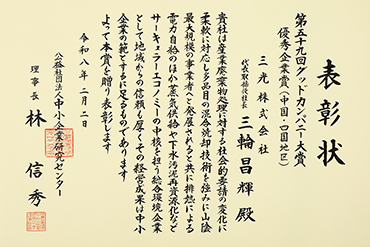 表彰状
第五十九回グッドカンパニー大賞
優秀企業賞(中国・四国地区)
三光株式会社
代表取締役社長 三輪昌輝殿
貴社は産業廃棄物処理に対する社会的要請の変化に
柔軟に対応し多品目の混合洗却技術を強みに山陰
最大規模の事業者へと発展されると共に排熱による
電力自給のほか蒸気供給や下水汚泥再資源化など
サーキュラーエコノミーの中核を担う総合環境企業
として地域からの信頼も厚くその経営成果は中小
企業の範とするに足るものであります
よって本賞を贈り表彰します
令和八年二月二日
公益社団法人中小企業研究センター
理事長 林信秀